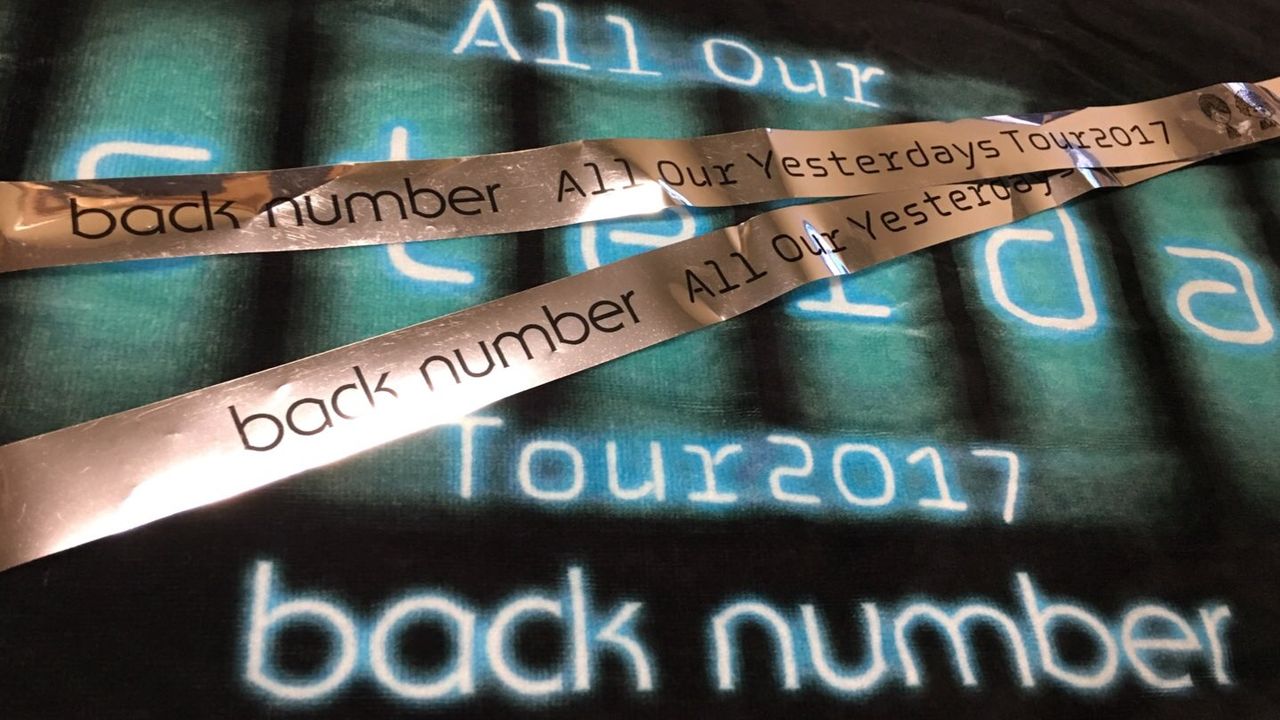 All Our
back number All Our Yesterdays Tour2017
back number All Our Yesterdays
Tour2017
back number